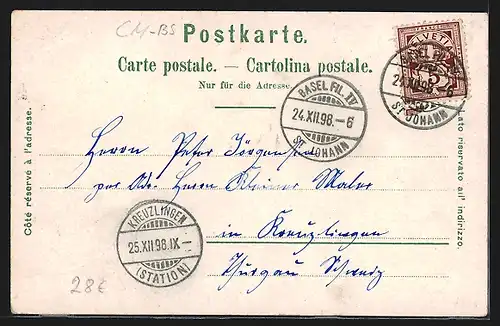 CM-BS
Postkarte.
Carte postale. — Cartolina postale.
Nur für die Adresse.
HELVETIA
BASEL FIL. IV
24.XII.98.–6
ST. JOHANN
BASEL FIL. IV
24.XII.98.–6
ST. JOHANN
Côté réservé à l'adresse.
Lato riservato all' indirizzo.
Herrn Peter Jörgensen
per Adr. Herrn Kleiner Maler
in Kreuzlingen
Thurgau Schweiz
KREUZLINGEN
25.XII.98.IX–
(STATION)
28€